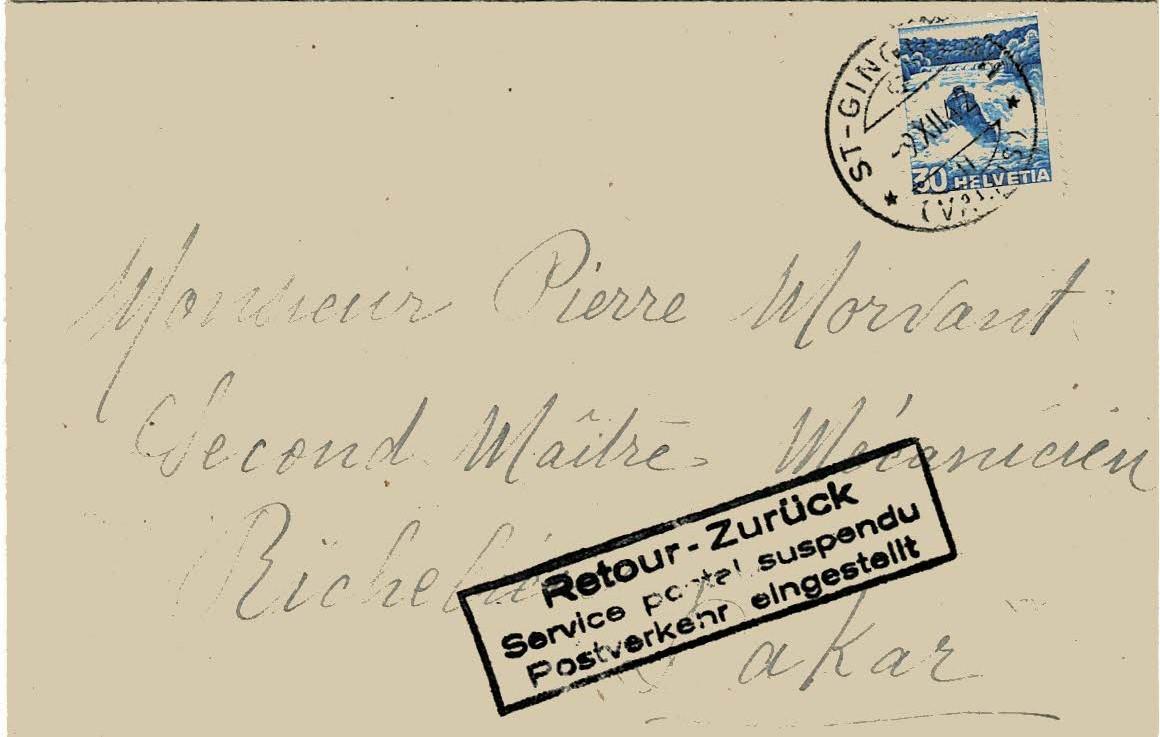 ST-GING
-9.XII.42
(VALAIS)
30 HELVETIA
Monsieur Pierre Morvant
Second Maître Mécanicien
Richelieu
Dakar
Retour - Zurück
Service postal suspendu
Postverkehr eingestellt